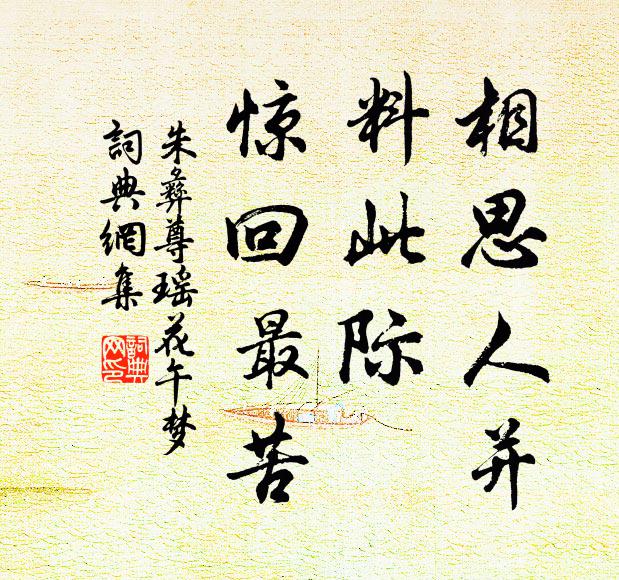 相思人并
料此际
惊回最苦
朱彝尊瑶花午梦
詞典網集
詞典网印